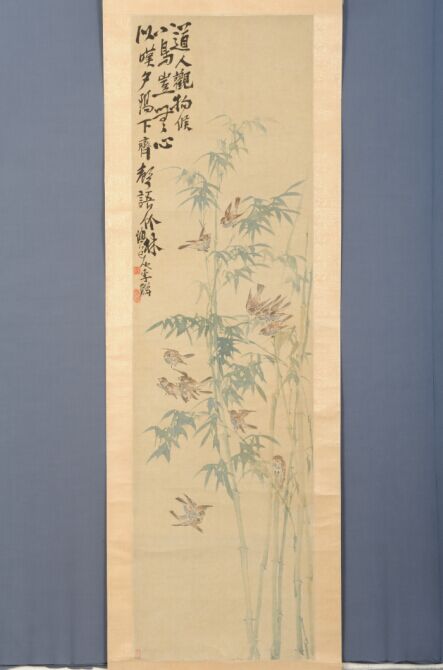 道人觀物候
小鳥豈無心
似嘆夕陽下齊聲語竹林